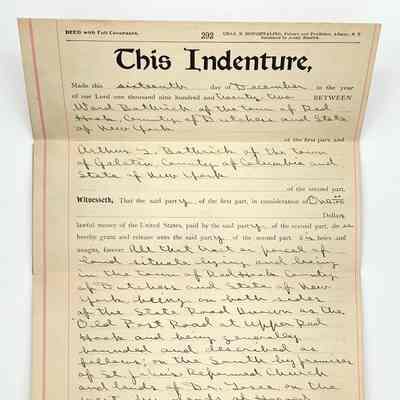 DEED with Full Covenants. 292 CHAS. R. HOUGHTALING, Printer and Publisher, Albany, N. Y.
This Indenture,
Made this sixteenth day of December in the year
of our Lord one thousand nine hundred and twenty two BETWEEN
Ward Bathrick of the town of Red
Hook, County of Dutchess and State
of New York
of the first part, and
Arthur L. Bathrick of the town
of Gallatin, County of Columbia and
State of New York
of the second part,
Witnesseth, That the said party of the first part, in consideration of One
Dollars
lawful money of the United States, paid by the said party of the second part, does
hereby grant and release unto the said party of the second part his heirs and
assigns, forever All that tract or parcel of
land situate lying and being
in the town of Red Hook County
of Dutchess and State of New
York being on both sides
of the State Road known as the
Old Post Road at Upper Red
Hook and being generally
bounded and described as
follows; on the South by premises
of St. Johns Reformed Church
and lands of Dr. on the
west by lands of